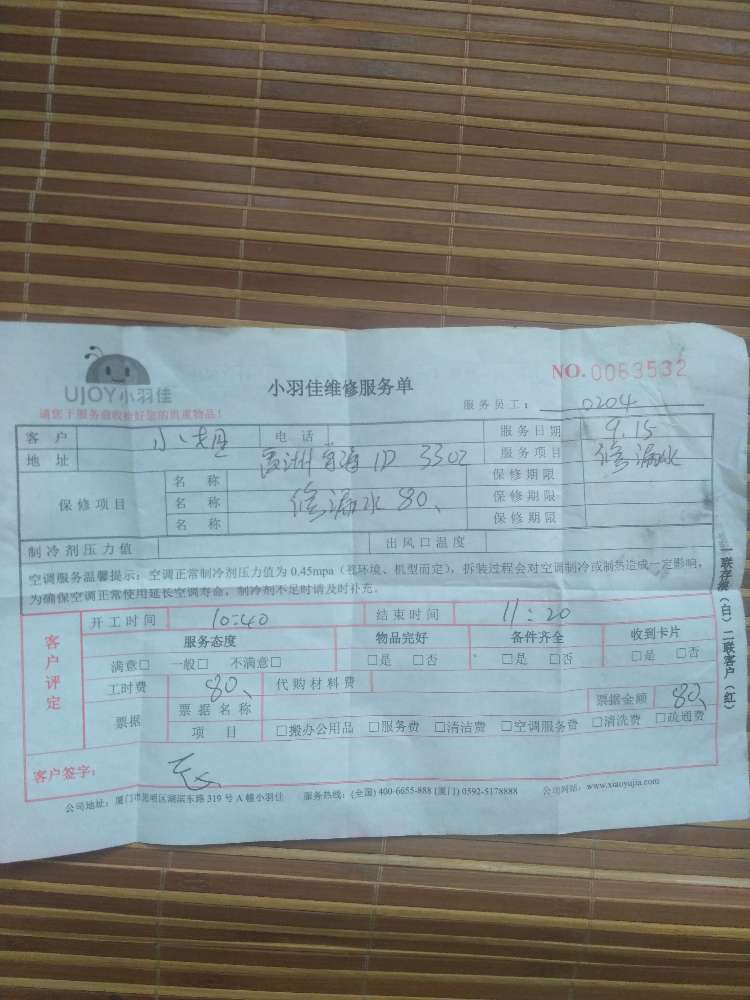 UJOY小羽佳
小羽佳维修服务单
NO.0063532
请您于服务前收拾好您的贵重物品!
服务员工: 0204
客户 小姐 电话 服务日期 9.15
地址 1D 3302 服务项目 修漏水
保修项目 名称 修漏水80、 保修期限
名称 保修期限
名称 保修期限
制冷剂压力值 出风口温度
空调服务温馨提示:空调正常制冷剂压力值为0.45mpa(视环境、机型而定),拆装过程会对空调制冷或制热造成一定影响,
为确保空调正常使用延长空调寿命,制冷剂不足时请及时补充。
一联存根(白)二联客户(红)
客户评定
开工时间 10:40 结束时间 11:20
服务态度 物品完好 备件齐全 收到卡片
满意□ 一般□ 不满意□ □是 □否 □是 □否 □是 □否
工时费 80、 代购材料费
票据 票据名称 票据金额 80、
项目 □搬办公用品 □服务费 □清洁费 □空调服务费 □清洗费 □疏通费
客户签字:
公司地址:厦门市思明区湖滨东路319号A幢小羽佳 服务热线:(全国)400-6655-888 (厦门)0592-5178888 公司网站:www.xiaoyujia.com